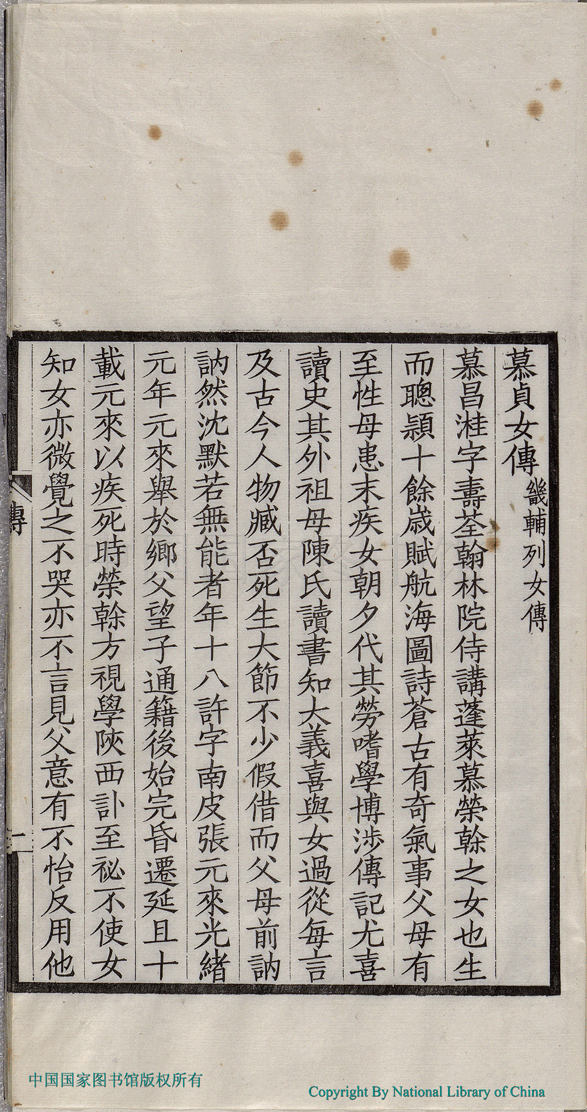 慕貞女傳 畿輔列女傳
慕昌溎字壽荃翰林院侍講蓬萊慕榮榦之女也生
而聰頴十餘歲賦航海圖詩蒼古有奇氣事父母有
至性母患末疾女朝夕代其勞嗜學博涉傳記尤喜
讀史其外祖母陳氏讀書知大義喜與女過從每言
及古今人物臧否死生大節不少假借而父母前訥
訥然沈默若無能者年十八許字南皮張元來光緒
元年元來舉於鄉父望子通籍後始完昏遷延且十
載元來以疾死時榮榦方視學陝西訃至祕不使女
知女亦微覺之不哭亦不言見父意有不怡反用他
傳
一
中国国家图书馆版权所有
Copyright By National Library of China